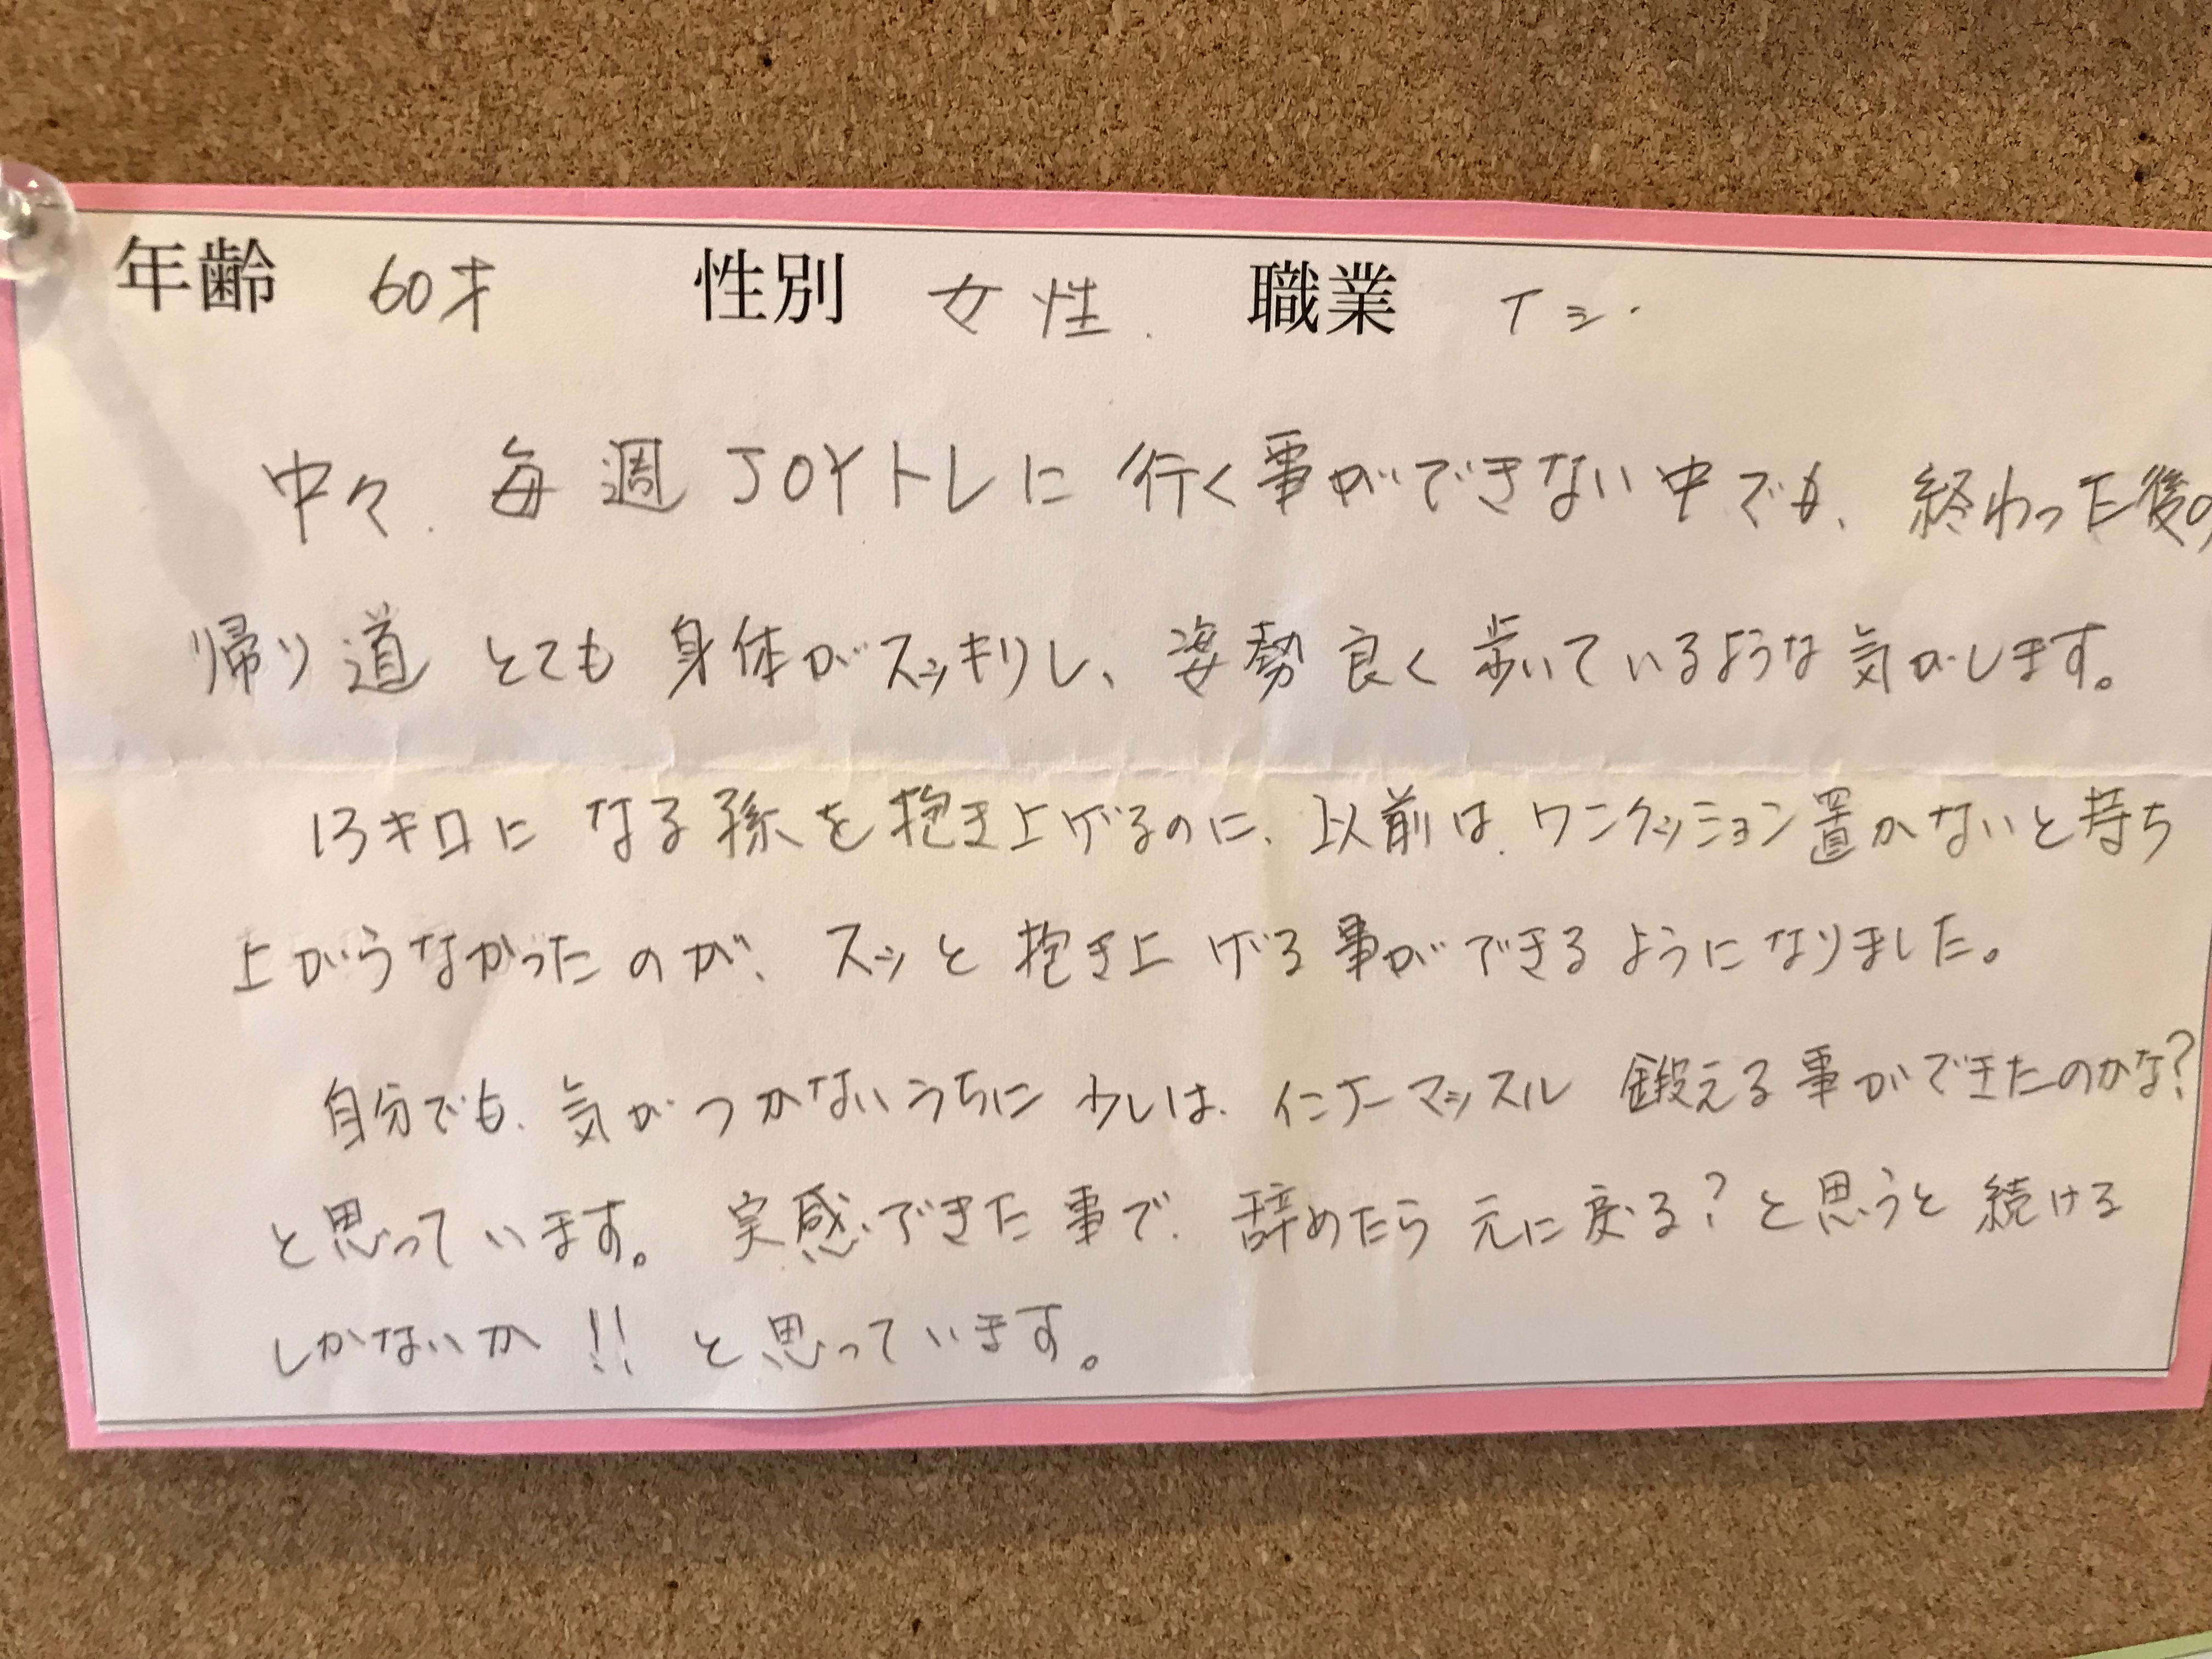 年齢 60才 性別 女性. 職業 ナシ.
中々. 毎週 JOYトレに 行く事ができない中でも、終わった後の
帰り道 とても 身体がスッキリし、姿勢 良く 歩いているような気がします。
13キロに なる孫を抱き上げるのに、以前は、ワンクッション置かないと持ち
上がらなかったのが、スッと 抱き上げる事ができるようになりました。
自分でも、気がつかないうちに 少しは、インナーマッスル 鍛える事ができたのかな?
と思っています。実感できた事で、辞めたら 元に戻る?と思うと 続ける
しかないか!!と思っています。